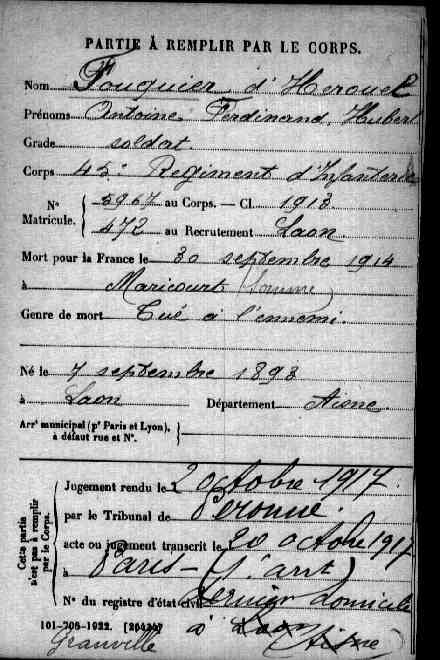 PARTIE À REMPLIR PAR LE CORPS.
Nom Fouquier d'Herouel
Prénoms Antoine Ferdinand, Hubert
Grade soldat
Corps 45e Regiment d'Infanterie
N° Matricule. { 5967 au Corps. — Cl. 1913
472 au Recrutement Laon
Mort pour la France le 30 septembre 1914
à Maricourt (Somme)
Genre de mort Tué à l'ennemi.
Né le 7 septembre 1893
à Laon Département Aisne
Arrt municipal (pr Paris et Lyon), à défaut rue et N°. }
Cette partie n'est pas à remplir par le Corps.
Jugement rendu le 2 octobre 1917.
par le Tribunal de Péronne.
acte ou jugement transcrit le 20 octobre 1917
à Paris - (1e arrt)
N° du registre d'état civil dernier domicile
à Laon Aisne)
101-708-1922. [26434]
Granville